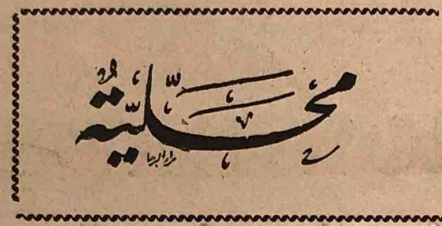 محَلّيّة